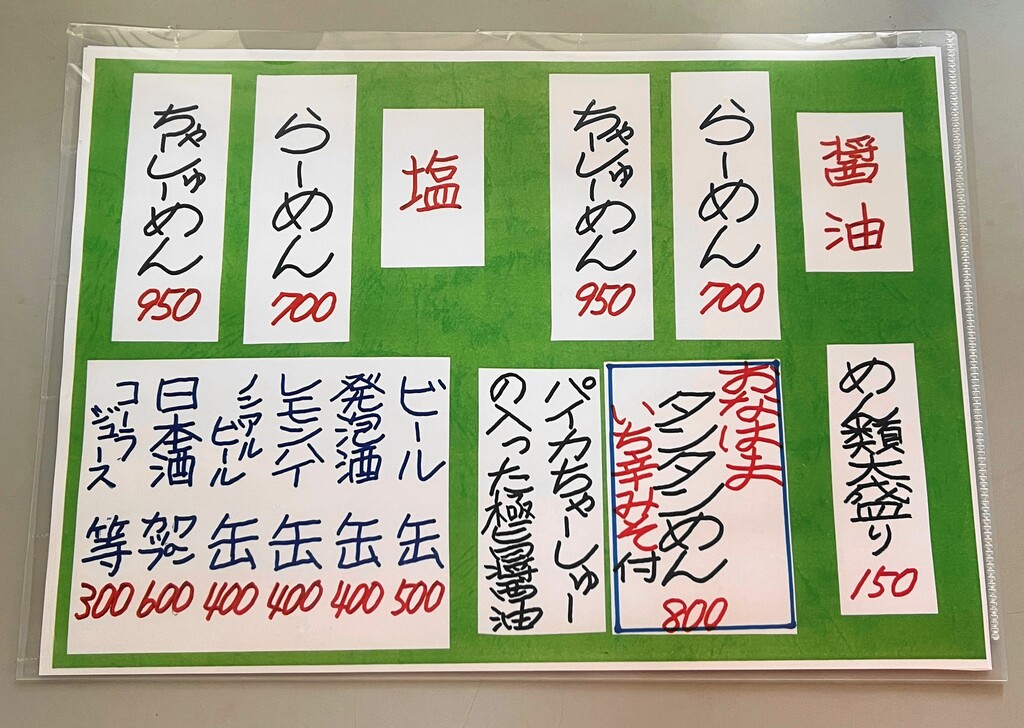 醤油
らーめん
700
ちゃーしゅーめん
950
塩
らーめん
700
ちゃーしゅーめん
950
めん類大盛り
150
おなはま
タンタンめん
800
いち辛みそ付
パイカちゃーしゅー
の入った極旨醤油
ビール 缶 500
発泡酒 缶 400
レモンハイ 缶 400
ノンアルビール 缶 400
日本酒 ワンカップ 600
コーラジュース 等 300